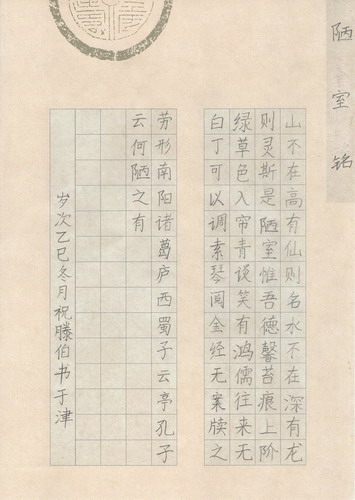 陋室铭
山不在高有仙则名水不在深有龙
则灵斯是陋室惟吾德馨苔痕上阶
绿草色入帘青谈笑有鸿儒往来无
白丁可以调素琴阅金经无案牍之
劳形南阳诸葛庐西蜀子云亭孔子
云何陋之有
岁次乙巳冬月祝滕伯书于津